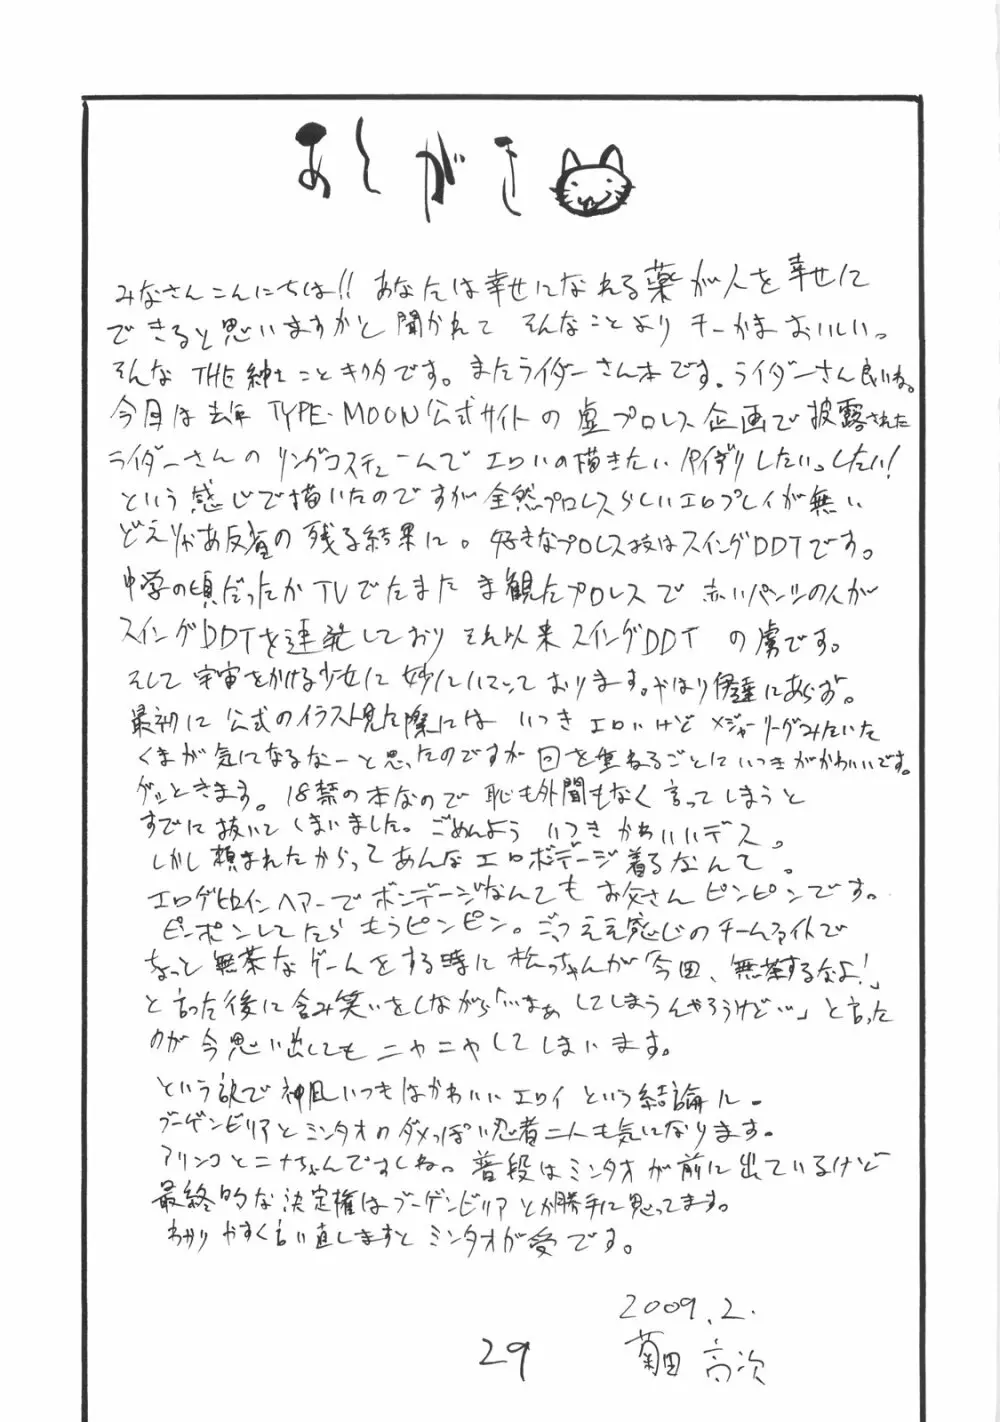 あとがき
みなさんこんにちは!! あなたは幸せになれる薬が人を幸せに
できると思いますかと聞かれて そんなことより チーかまおいしいっ
そんな THE紳士ことキクタです。またライダーさん本です。ライダーさん良いね。
今回は去年 TYPE-MOON公式サイトの虚プロレス企画で披露された
ライダーさんのリングコスチュームでエロいの描きたいパイズリしたい。したい!
という感じで描いたのですが全然プロレスらしいエロプレイが無い
どえりゃあ反省の残る結果に。好きなプロレス技はスイングDDTです。
中学の頃だったか TVでたまたま観たプロレスで 赤いパンツの人が
スイングDDTを連発しており それ以来スイングDDT の虜です。
そして 宇宙をかける少女に 妙にハマっております。やはり伊達にあらず。
最初に 公式のイラスト見た際には いつき エロいけど メジャーリーグみたいた
くまが気になるなーと思ったのですが回を重ねるごとにいつきがかわいいです。
グッときます。18禁の本なので 恥も外聞もなく 言ってしまうと
すでに抜いてしまいました。ごめんよう いつき かわいいデス。
しかし 頼まれたからってあんなエロボンデージ着るなんて。
エロゲヒロインヘアーでボンデージなんてもうお父さんピンピンです。
ピンポンしてたらもうピンピン。ごっつええ感じのチームファイトで
ちょっと無茶なゲームをする時に松っちゃんが「今田、無茶するなよ!」
と言った後に含み笑いをしながら「いまぁ してしまうんやろうけど…」と言った
のが今思い出してもニヤニヤしてしまいます。
という訳で神凪いつきはかわいいエロイという結論に。
ブーゲンビリアとミンタオのダメっぽい忍者二人も気になります。
アリンコとニナちゃんですしね。普段はミンタオが前に出ているけど
最終的な決定権はブーゲンビリアとか勝手に思ってます。
わかりやすく言い直しますと ミンタオが受です。
2009.2.
菊田 高次
29